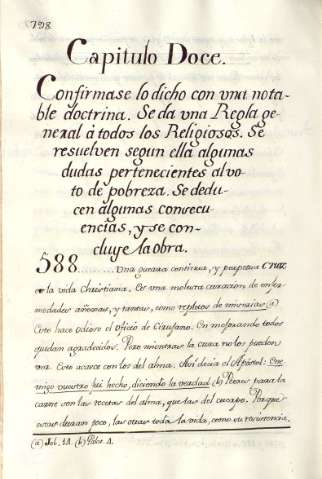 728
Capitulo Doce.
Confirmase lo dicho con una nota-
ble doctrina. Se da una Regla ge-
neral à todos los Religiosos. Se
resuelven segun ella algunas
dudas pertenecientes al vo-
to de pobreza. Se dedu-
cen algunas consecu-
encias, y se con-
cluye la obra.
588 Una guerra continua, y perpetua Cruz
es la vida Christiana. Es una molesta curacion de enfer-
medades añejas, y tantas, como repletos de miserias (a)
Esto hace odioso el oficio de Cirujano. En mejorando todos
quedan agradecidos. Pero mientras la cura no los pueden
Esto acaece con los del alma. Asi decia el Apostol: Ene-
migo vuestro fui hecho, diciendo la verdad (b) para la
carne son las recetas del alma, que las del cuerpo. Porque
estas duran poco, las otras toda la vida, como su resistencia.
(a) Job. 14. (b)